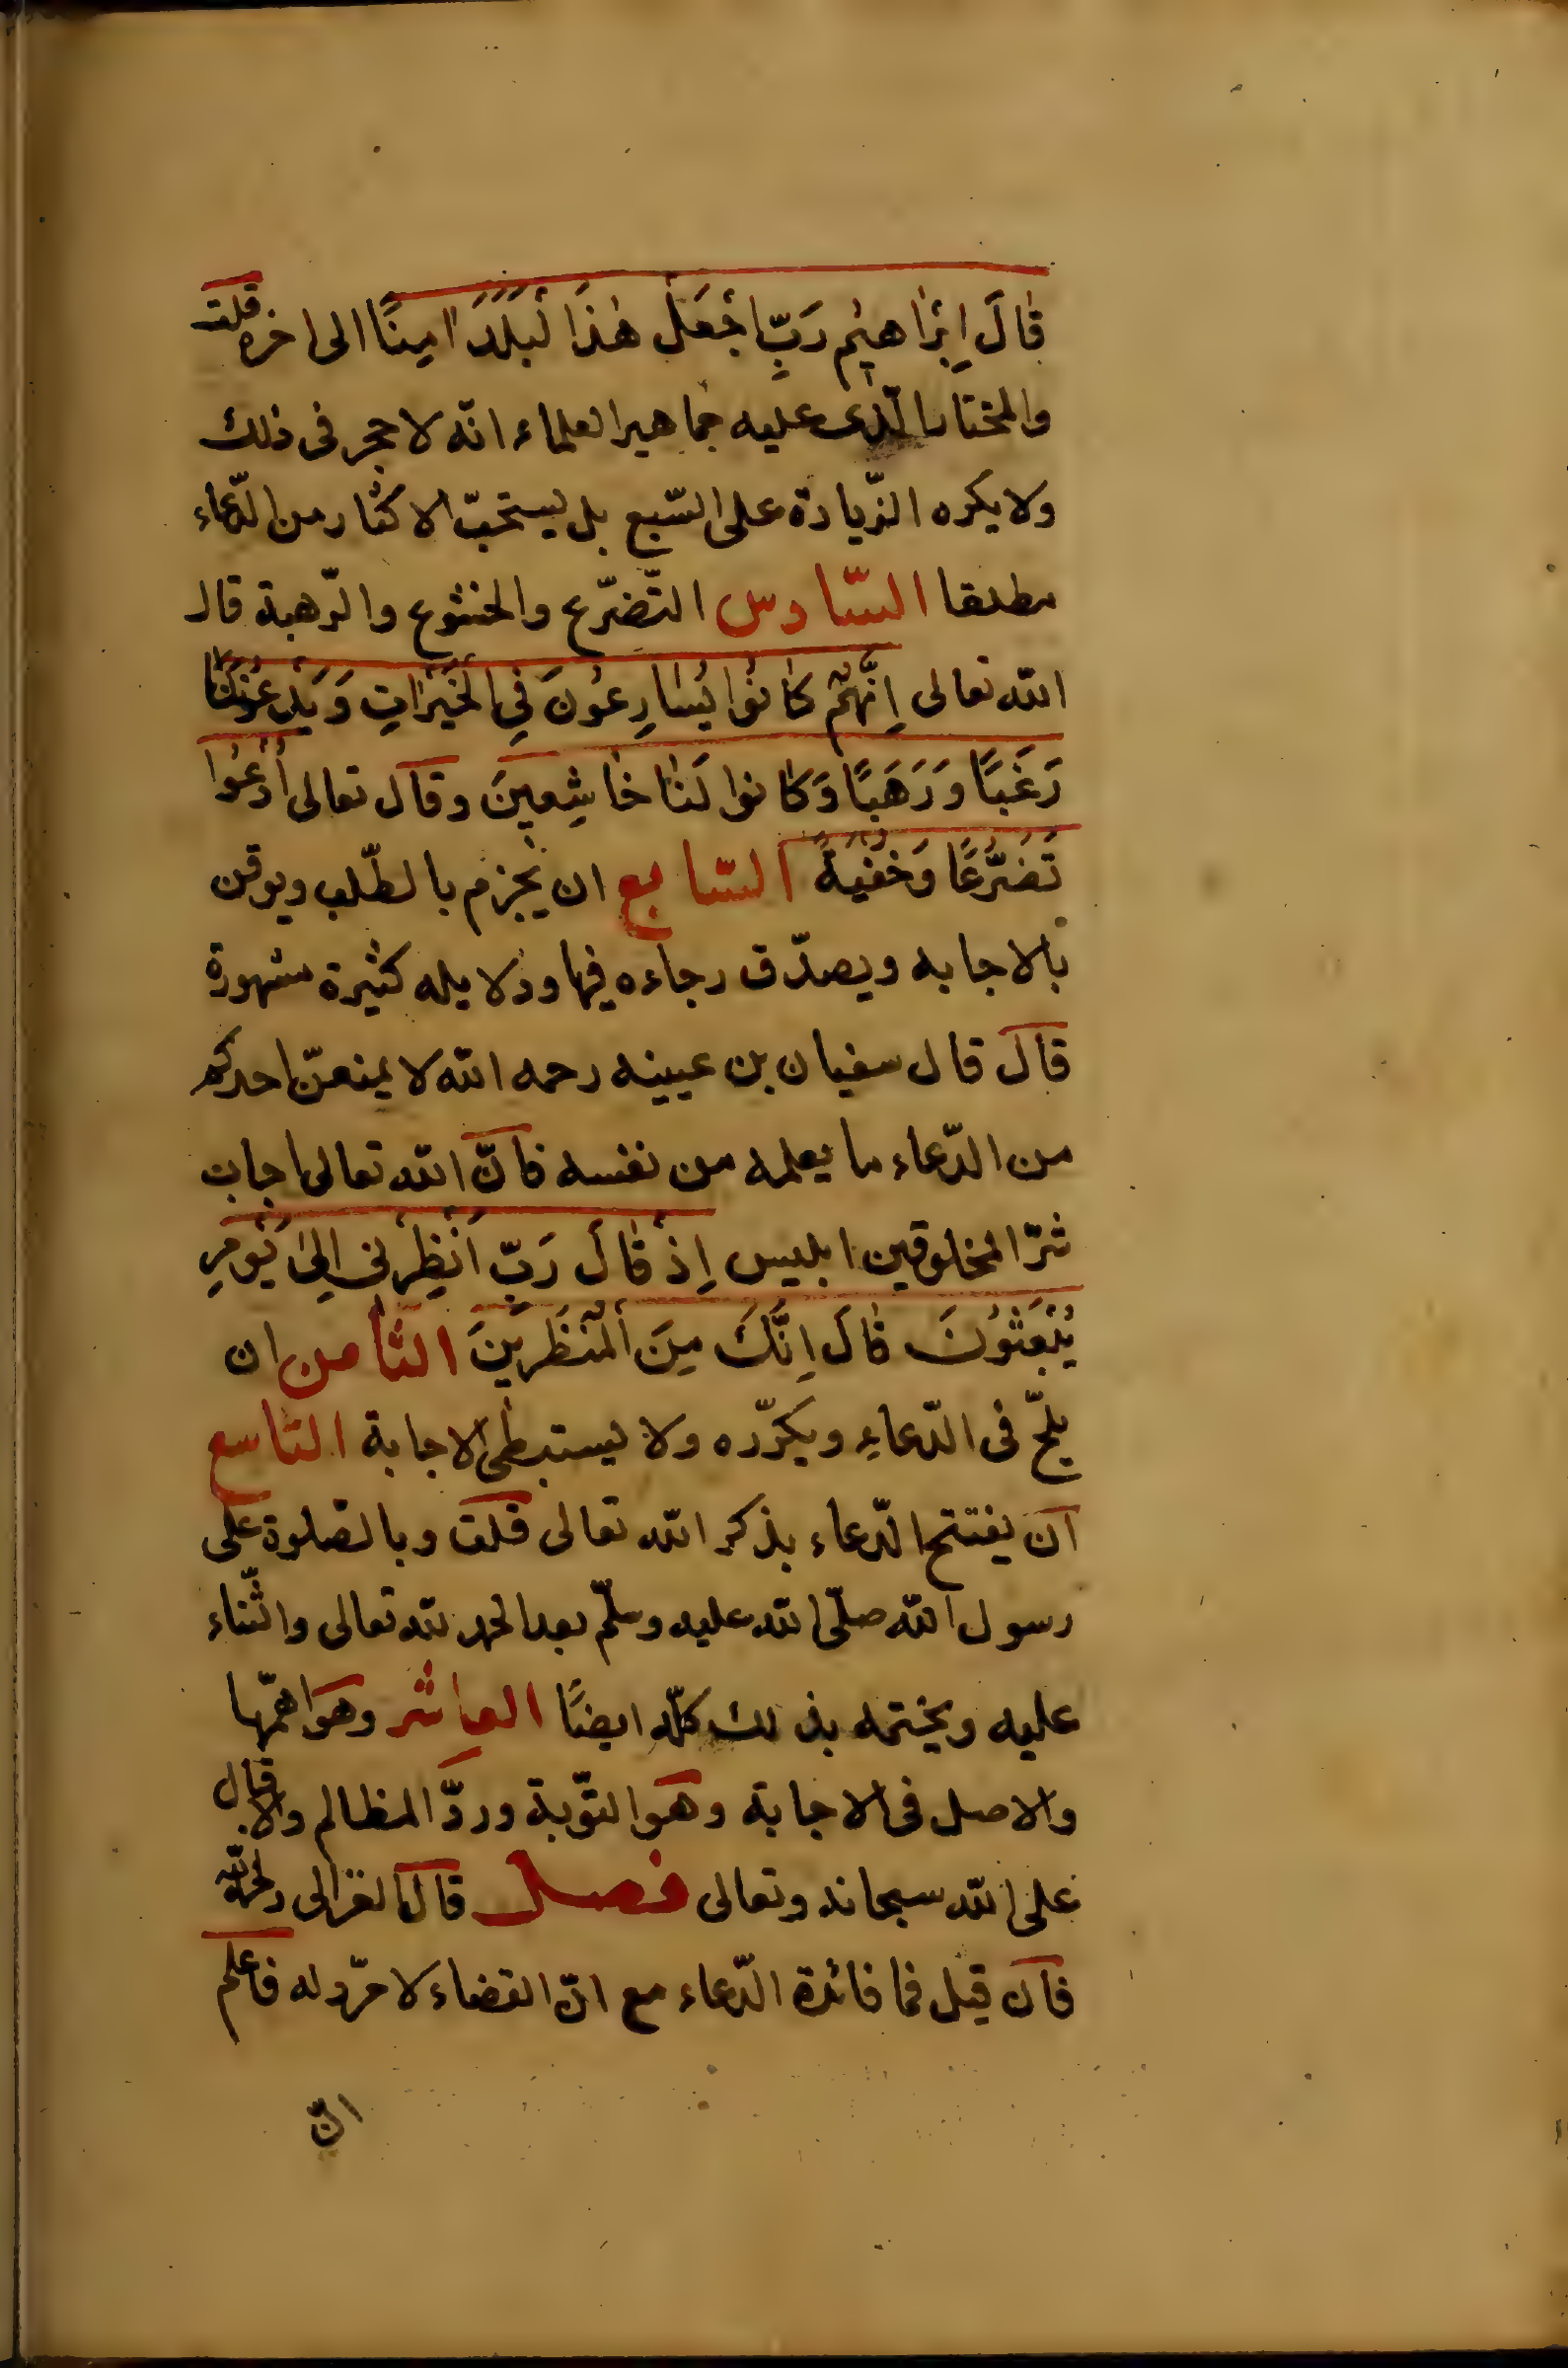 قَالَ اِبْرٰاهيٖم رَبِّ اجْعَلْ هٰذَا لْبَلَدَ اٰمِنًا الى اخره قلت
والمختار الّذى عليه جماهير العلماء انّه لا حجر فى ذلك
ولا يكره الزّيادة على السّبع بل يستحبّ الاكثار من الدّعاء
مطلقا السّادس التّضرّع والخشوع والرّهبة قال
الله تعالى اِنَّهُمْ كَانُوا يُسَارِعُونَ فِى الْخَيْرَاتِ وَيَدْعُونَنَا
رَغَبًا وَرَهَبًا وَكَانوا لَنَا خَاشِعينَ وقال تعالى اُدْعُوا
تَضَرُّعًا وَخُفْيَةً السّابع ان يجزم بالطّلب ويوقن
بالاجابه ويصدّق رجاءه فيها ودلايله كثيرة مشهورة
قال قال سفيان بن عيينه رحمه الله لا يمنعنّ احدكم
من الدّعاء ما يعلمه من نفسه فانّ الله تعالى اجاب
شرّ المخلوقين ابليس اِذْ قَالَ رَبِّ اَنْظِرْنى اِلىٰ يَوْمِ
يُبْعَثُونَ قَالَ اِنَّكَ مِنَ الْمُنْظَرِينَ الثّامن ان
يلحّ فى الدّعاءِ ويكرّره ولا يستبطئ الاجابة التّاسع
ان يفتتح الدّعاء بذكر الله تعالى قلت وبالصّلوة على
رسول الله صلّى الله عليه وسلّم بعد الحمد لله تعالى والثّناء
عليه ويختمه بذلك كلّه ايضًا العاشر وهو اهمّها
والاصل فى الاجابة وهو التّوبة وردّ المظالم والاقبال
على الله سبحانه وتعالى فصل قال الغزالى رحمه الله
فان قيل فما فائدة الدّعاء مع انّ القضاء لا مرّد له فاعلم
انّ